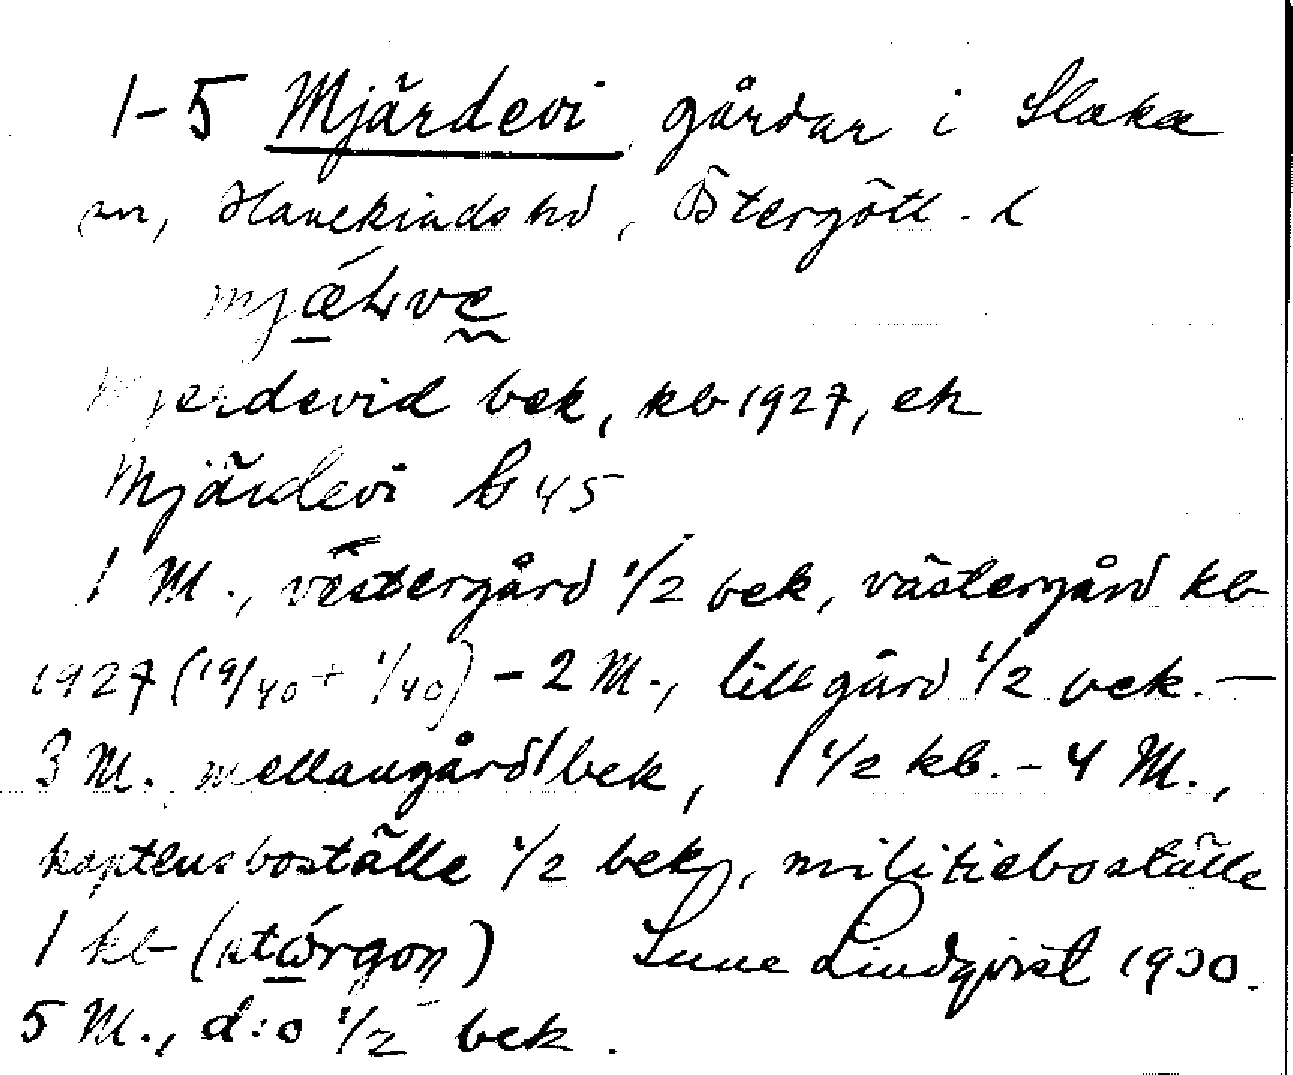 1-5 Mjärdevi gårdar i Slaka
sn, Hanekinds hd, Östergötl. l
Mjerdevid bek, kb 1927, ek
Mjärdevi G 45
1 M., västergård 1/2 bek, västergård kb
1927 (19/40 + 1/40) - 2 M., lillgård 1/2 bek. —
3 M. mellangård 1 bek, 1 1/2 kb. - 4 M.,
kaptensboställe 1/2 bek, militieboställe
1 kb (stórgon) Sune Lindqvist 1930.
5 M., d:o 1/2 bek.